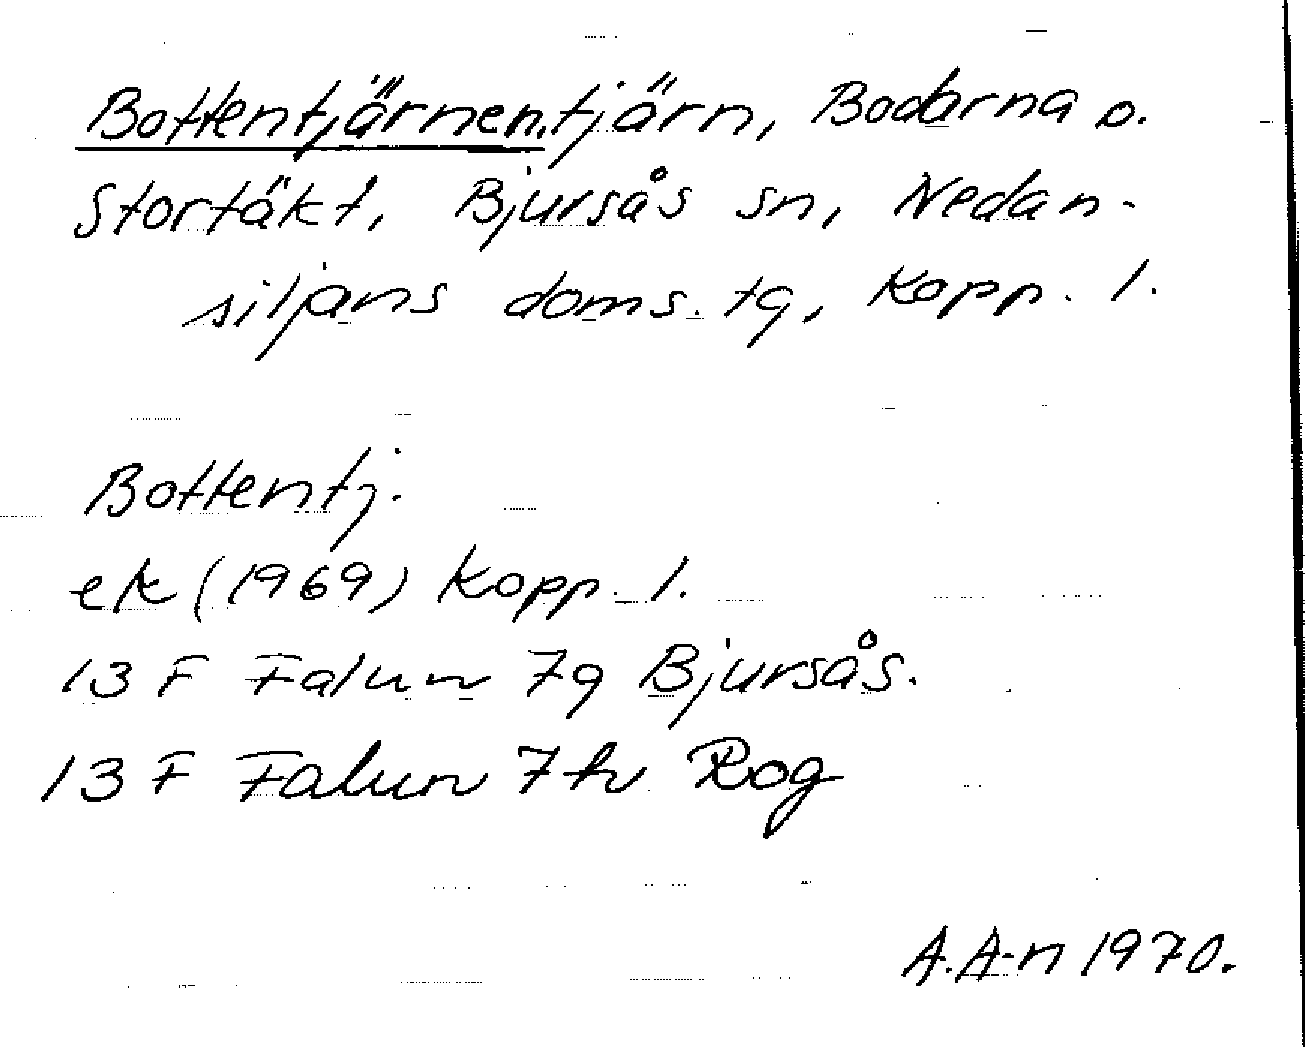 Bottentjärnen, tjärn, Bodarna o.
Stortäkt, Bjursås sn, Nedan-
siljans doms. tg, Kopp. l.
Bottentj.
ek (1969) Kopp. l.
13 F Falun 7g Bjursås.
13 F Falun 7h Rog
A. A-n 1970.